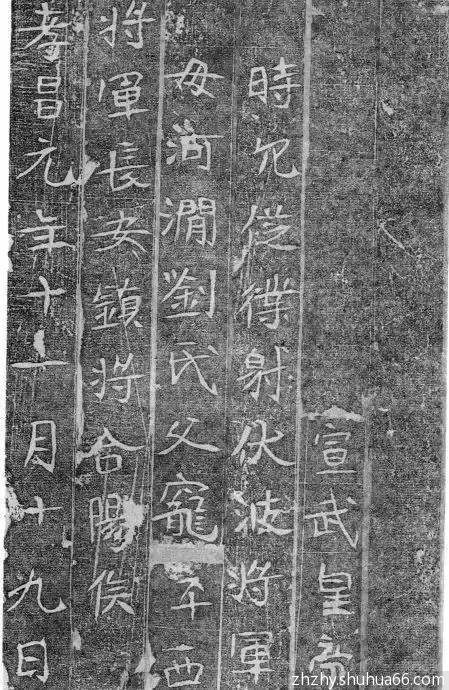 宣武皇帝
時冗從僕射伏波將軍
母河澗劉氏父寵平西
將軍長安鎮將合陽侯
孝昌元年十一月十九日
zhzhy.shuhua66.com